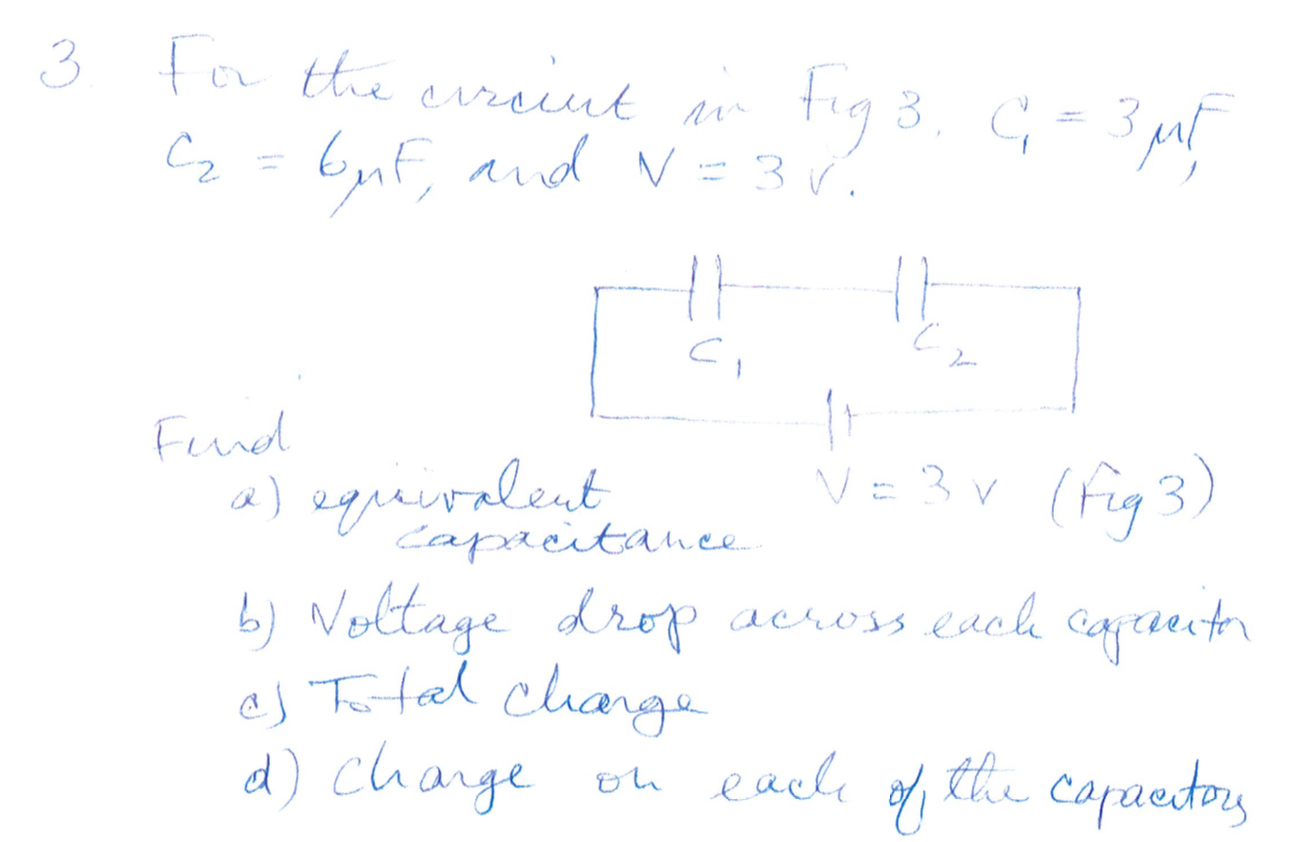 3. For the circuit in Fig 3, C₁ = 3 μF,
C₂ = 6μF, and V = 3 v.
C₁
C₂
Find
V = 3 v (Fig 3)
a) equivalent
capacitance
b) Voltage drop across each capacitor
c) Total charge
d) Charge on each of the capacitors